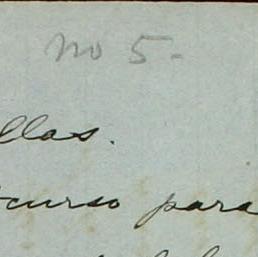 no 5.
llas.
curso para